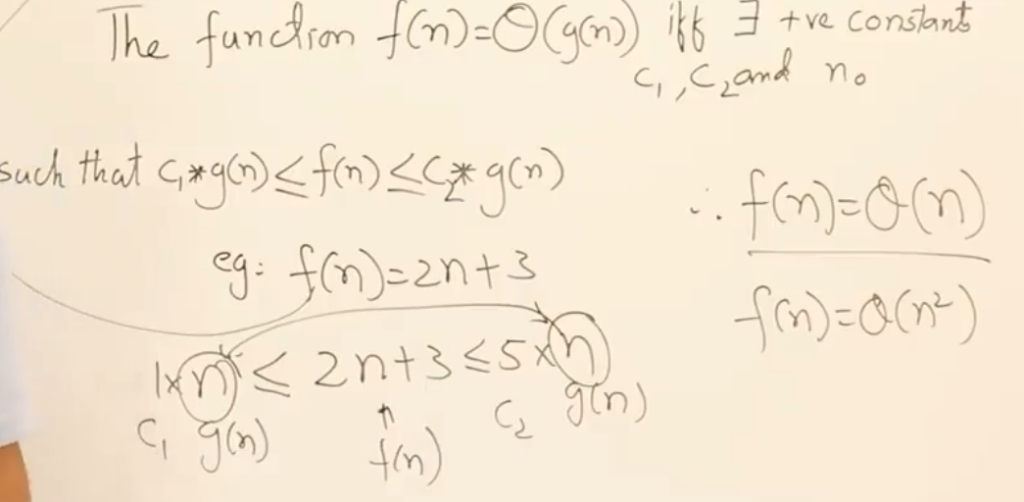 The function f(n)=Θ(g(n)) iff ∃ +ve constants
c₁, c₂ and n₀
such that c₁*g(n) ≤ f(n) ≤ c₂* g(n)
eg: f(n)=2n+3
1×n ≤ 2n+3 ≤ 5×n
c₁ g(n) f(n) c₂ g(n)
∴ f(n)=Θ(n)
f(n)=Θ(n²)